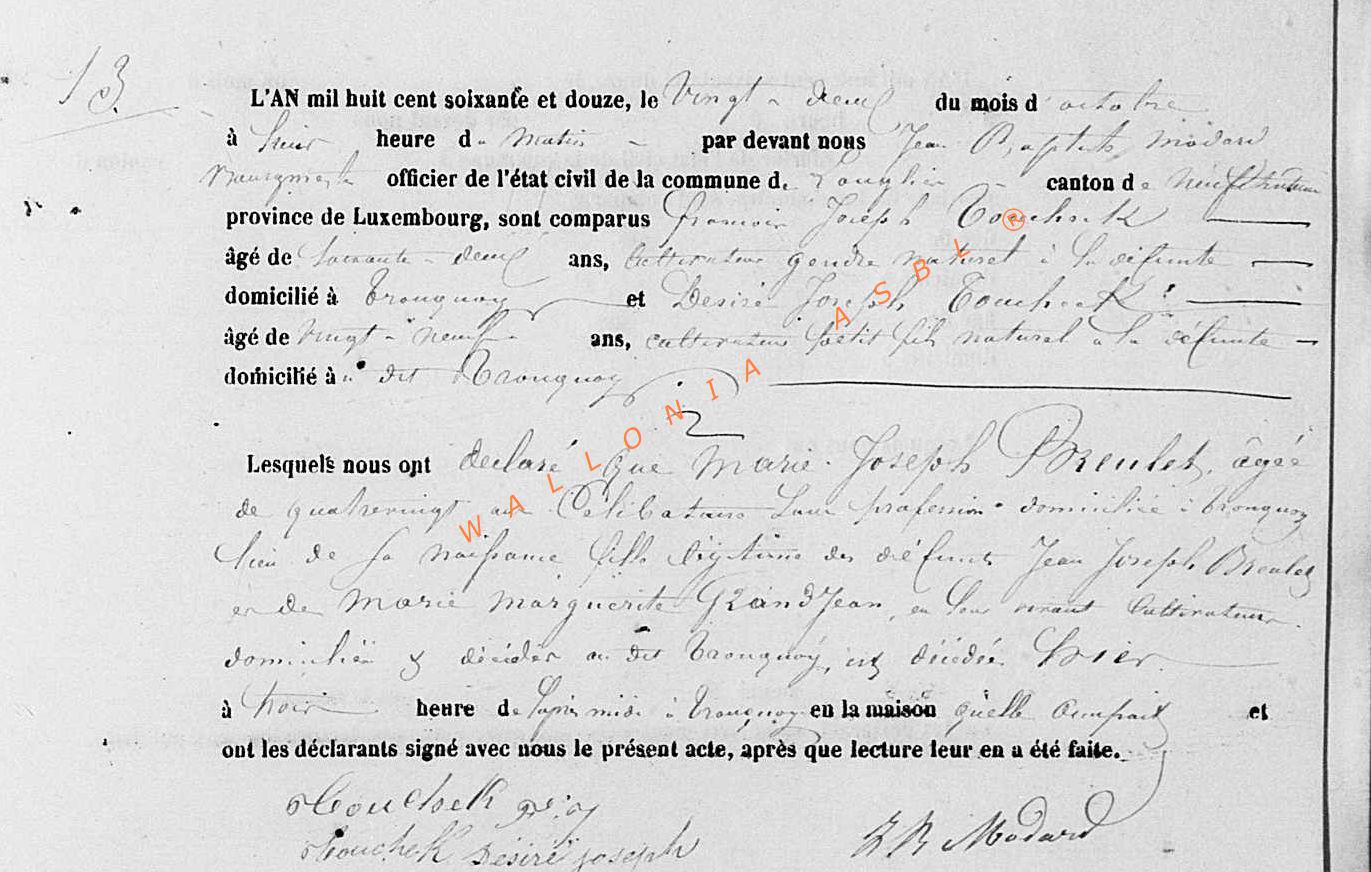 13.
L'AN mil huit cent soixante et douze, le Vingt-deux du mois d'octobre
à huit heure du matin par devant nous Jean Baptiste Médard
officier de l'état civil de la commune de Longlier canton de Neufchateau
province de Luxembourg, sont comparus françois Joseph Touchek
âgé de Soixante-deux ans, Cultivateur gendre naturel à la défunte
domicilié à Tronquoy et Desiré Joseph Toucheck
âgé de Vingt-neuf ans, cultivateur petit fils naturel à la défunte
domicilié au dit Tronquoy
2
Lesquels nous ont declaré que Marie Joseph Breulet, âgée
de quatrevingt ans Célibataire Sans profession domiciliée à Tronquoy
lieu de sa naissance fille légitime des défunts Jean Joseph Breulet
et de Marie Marguerite Grandjean, en leur vivant Cultivateurs
domiciliés & décédés au dit Tronquoy, est décédée hier
à trois heure de l'après midi à Tronquoy en la maison qu'elle occupait et
ont les déclarants signé avec nous le présent acte, après que lecture leur en a été faite.
Touchek
Touchek Désiré joseph
J B Médard
WALLONIA ASBL ®